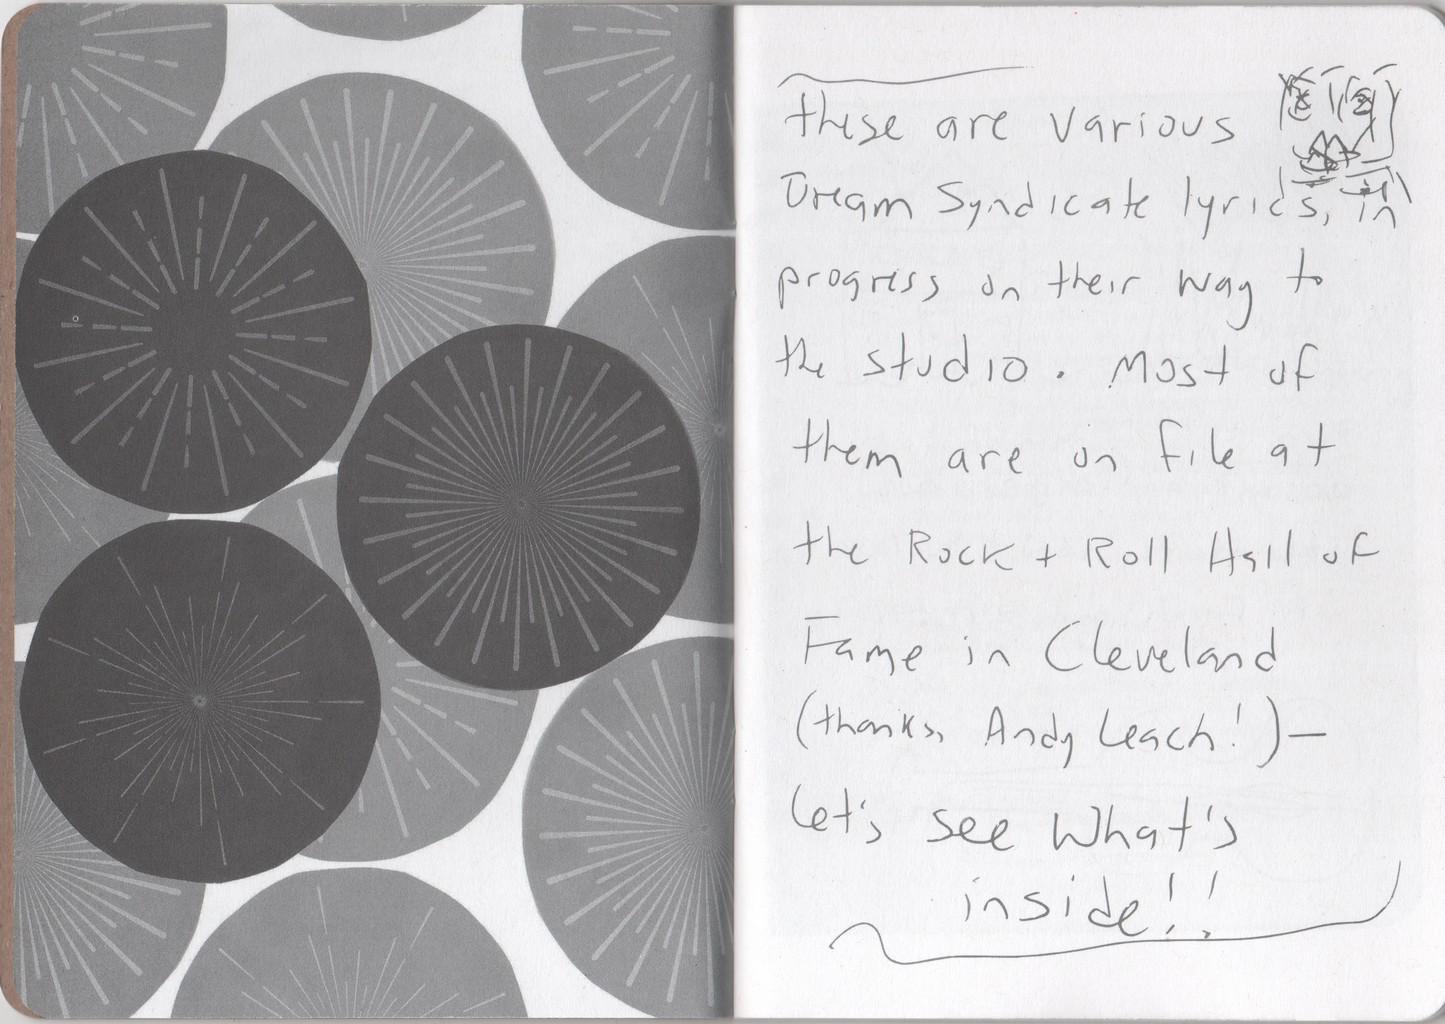 these are various
Dream Syndicate lyrics, in
progress on their way to
the studio. Most of
them are on file at
the Rock + Roll Hall of
Fame in Cleveland
(thanks, Andy Leach!) —
Let's see what's
inside!!